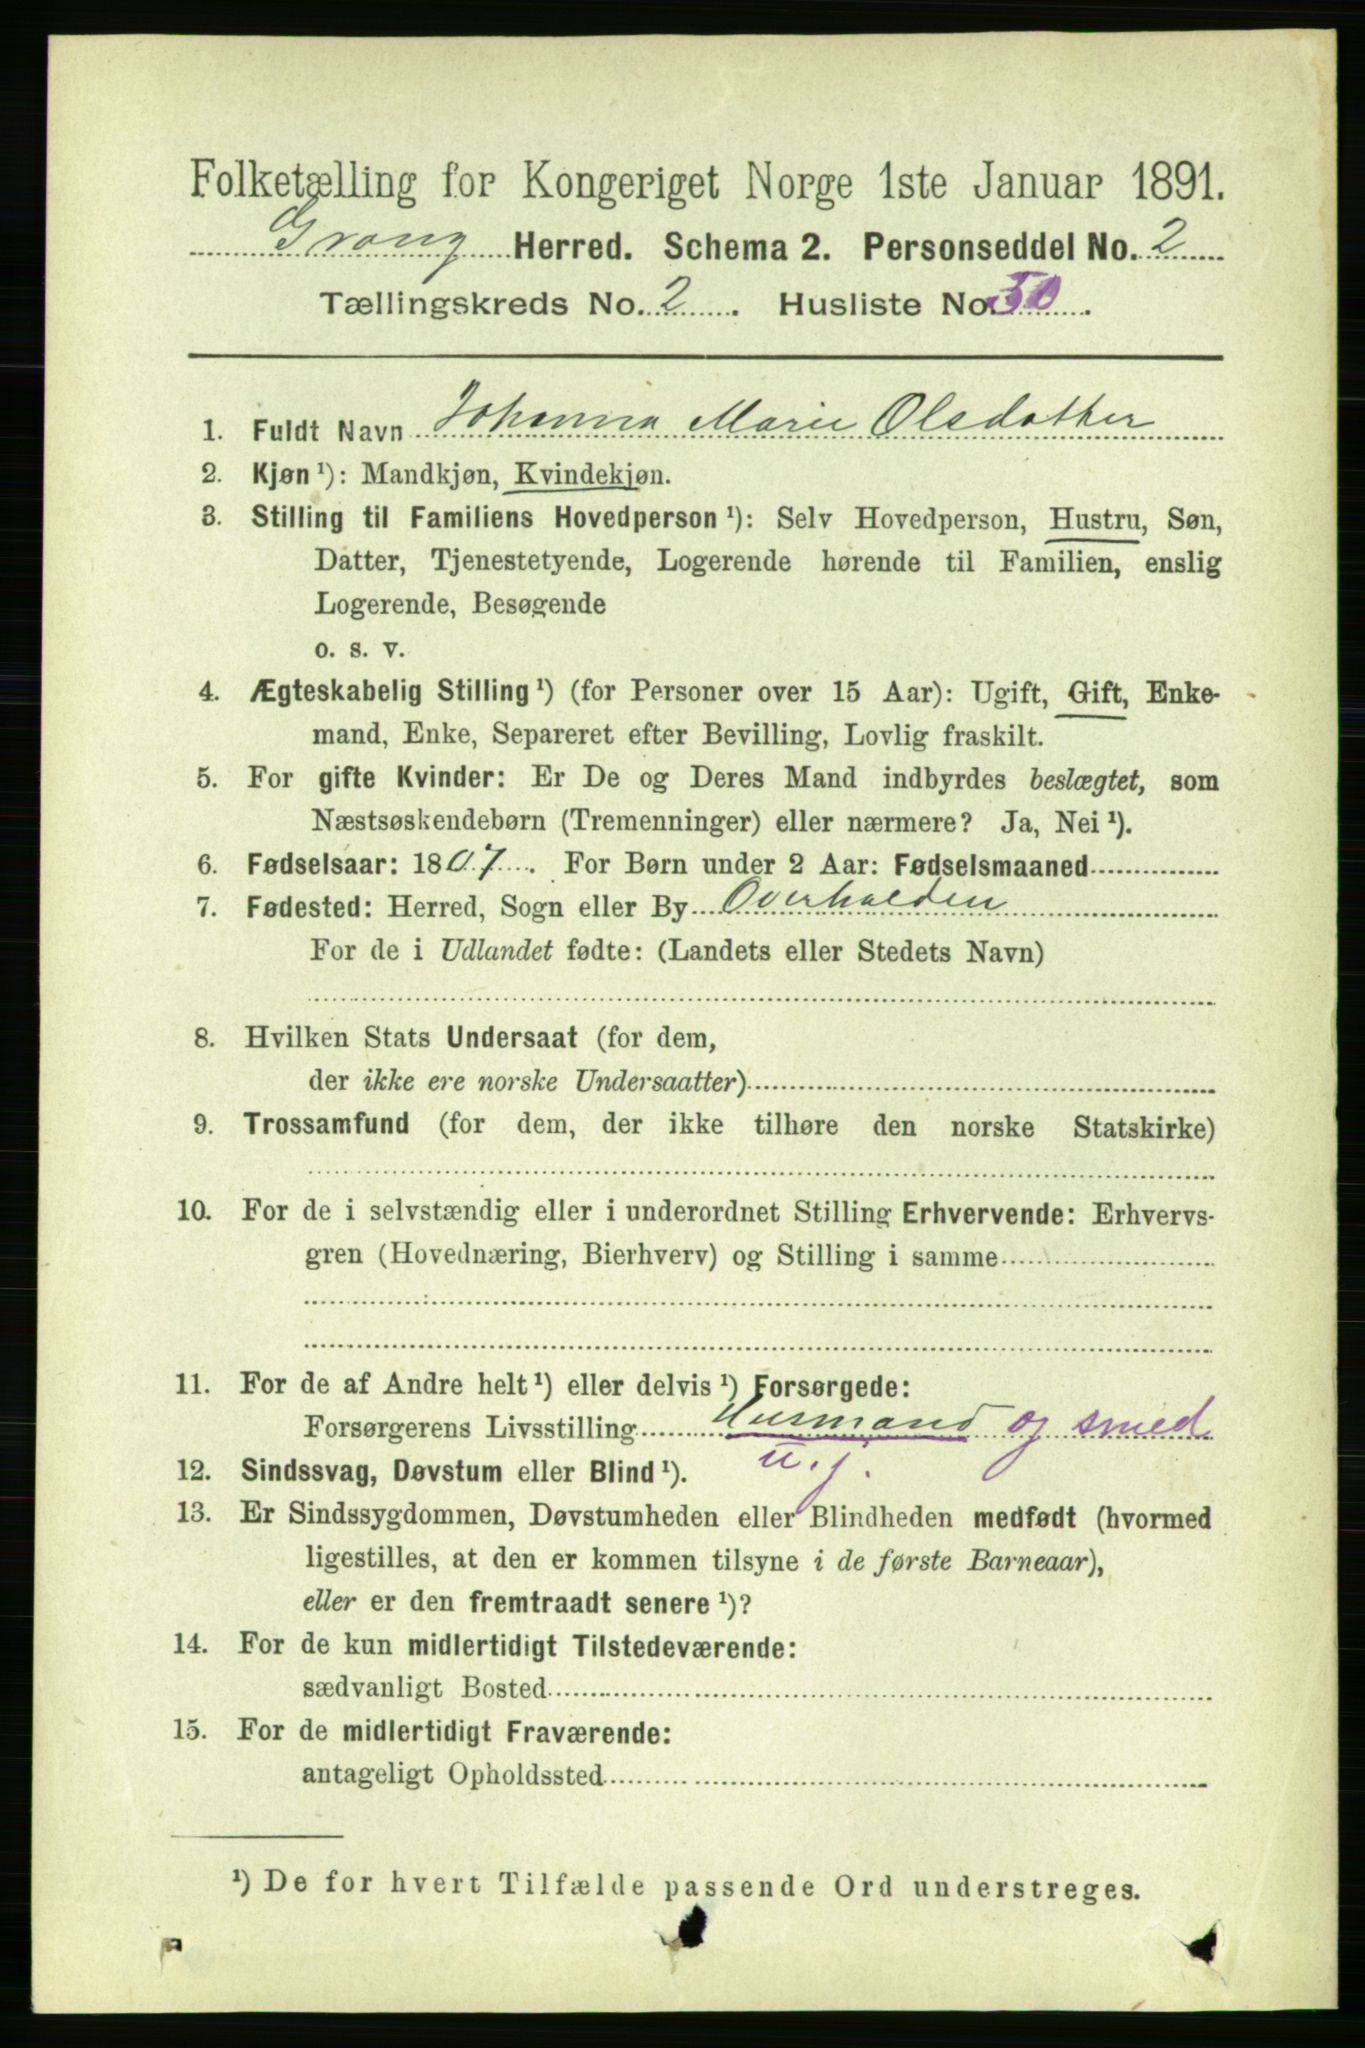 Folketælling for Kongeriget Norge 1ste Januar 1891.
Grong Herred. Schema 2. Personseddel No. 2
Tællingskreds No. 2. Husliste No. 50.
1. Fuldt Navn Johanna Marie Olsdatter
2. Kjøn ¹): Mandkjøn, Kvindekjøn.
3. Stilling til Familiens Hovedperson ¹): Selv Hovedperson, Hustru, Søn,
Datter, Tjenestetyende, Logerende hørende til Familien, enslig
Logerende, Besøgende
o. s. v.
4. Ægteskabelig Stilling ¹) (for Personer over 15 Aar): Ugift, Gift, Enke-
mand, Enke, Separeret efter Bevilling, Lovlig fraskilt.
5. For gifte Kvinder: Er De og Deres Mand indbyrdes beslægtet, som
Næstsøskendebørn (Tremenninger) eller nærmere? Ja, Nei ¹).
6. Fødselsaar: 1807. For Børn under 2 Aar: Fødselsmaaned
7. Fødested: Herred, Sogn eller By Overhalden
For de i Udlandet fødte: (Landets eller Stedets Navn)
8. Hvilken Stats Undersaat (for dem,
der ikke ere norske Undersaatter)
9. Trossamfund (for dem, der ikke tilhøre den norske Statskirke)
10. For de i selvstændig eller i underordnet Stilling Erhvervende: Erhvervs-
gren (Hovednæring, Bierhverv) og Stilling i samme
11. For de af Andre helt ¹) eller delvis ¹) Forsørgede:
Forsørgerens Livsstilling Husmand og smed
u. j.
12. Sindssvag, Døvstum eller Blind ¹).
13. Er Sindssygdommen, Døvstumheden eller Blindheden medfødt (hvormed
ligestilles, at den er kommen tilsyne i de første Barneaar),
eller er den fremtraadt senere ¹)?
14. For de kun midlertidigt Tilstedeværende:
sædvanligt Bosted
15. For de midlertidigt Fraværende:
antageligt Opholdssted
¹) De for hvert Tilfælde passende Ord understreges.